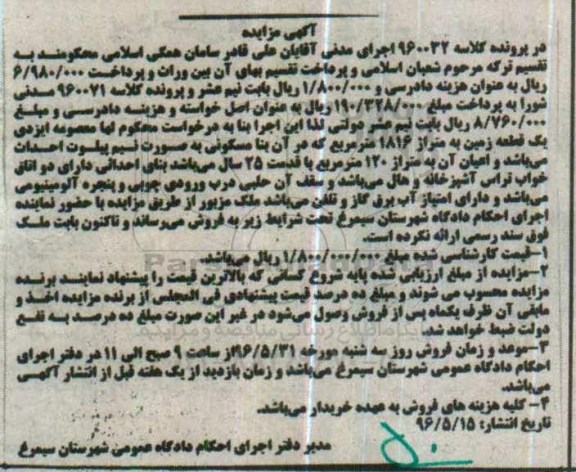 آگهی مزایده
در پرونده کلاسه ۹۶۰۰۳۲ اجرای مدنی آقایان علی قادر سامان همگی اسلامی محکومند به
تقسیم ترکه مرحوم شعبان اسلامی و پرداخت تقسیم بهای آن بین وراث و پرداخت ۶/۹۸۰/۰۰۰
ریال به عنوان هزینه دادرسی و ۱/۸۰۰/۰۰۰ ریال بابت نیم عشر و پرونده کلاسه ۹۶۰۰۷۱ مدنی
شورا به پرداخت مبلغ ۱۹۰/۳۲۸/۰۰۰ ریال به عنوان اصل خواسته و هزینه دادرسی و مبلغ
۸/۷۶۰/۰۰۰ ریال بابت نیم عشر دولتی لذا این اجرا بنا به درخواست محکوم لها معصومه ایزدی
یک قطعه زمین به متراژ ۱۸۱۶ مترمربع که در آن بنا مسکونی به صورت نیم پیلوت احداث
میباشد و اعیان آن به متراژ ۱۲۰ مترمربع با قدمت ۲۵ سال می‌باشد بنای احداثی دارای دو اتاق
خواب تراس آشپزخانه و هال می‌باشد و سقف آن حلبی درب ورودی چوبی و پنجره آلومینیومی
می‌باشد و دارای امتیاز آب برق گاز و تلفن می‌باشد ملک مزبور از طریق مزایده با حضور نماینده
اجرای احکام دادگاه شهرستان سیمرغ تحت شرایط زیر به فروش می‌رساند و تاکنون بابت ملک
فوق سند رسمی ارائه نکرده است.
۱-قیمت کارشناسی شده مبلغ ۱/۸۰۰/۰۰۰/۰۰۰ ریال می‌باشد.
۲-مزایده از مبلغ ارزیابی شده پایه شروع کسانی که بالاترین قیمت را پیشنهاد نمایند برنده
مزایده محسوب می شوند و مبلغ ده درصد قیمت پیشنهادی فی المجلس از برنده مزایده اخذ و
مابقی آن ظرف یکماه پس از فروش وصول می‌شود در غیر این صورت مبلغ ده درصد به نفع
دولت ضبط خواهد شد.
۳-موعد و زمان فروش روز سه شنبه مورخه ۹۶/۵/۳۱ از ساعت ۹ صبح الی ۱۱ در دفتر اجرای
احکام دادگاه عمومی شهرستان سیمرغ می‌باشد و زمان بازدید از یک هفته قبل از انتشار آگهی
می‌باشد.
۴- کلیه هزینه های فروش به عهده خریدار می‌باشد.
تاریخ انتشار: ۹۶/۵/۱۵
مدیر دفتر اجرای احکام دادگاه عمومی شهرستان سیمرغ